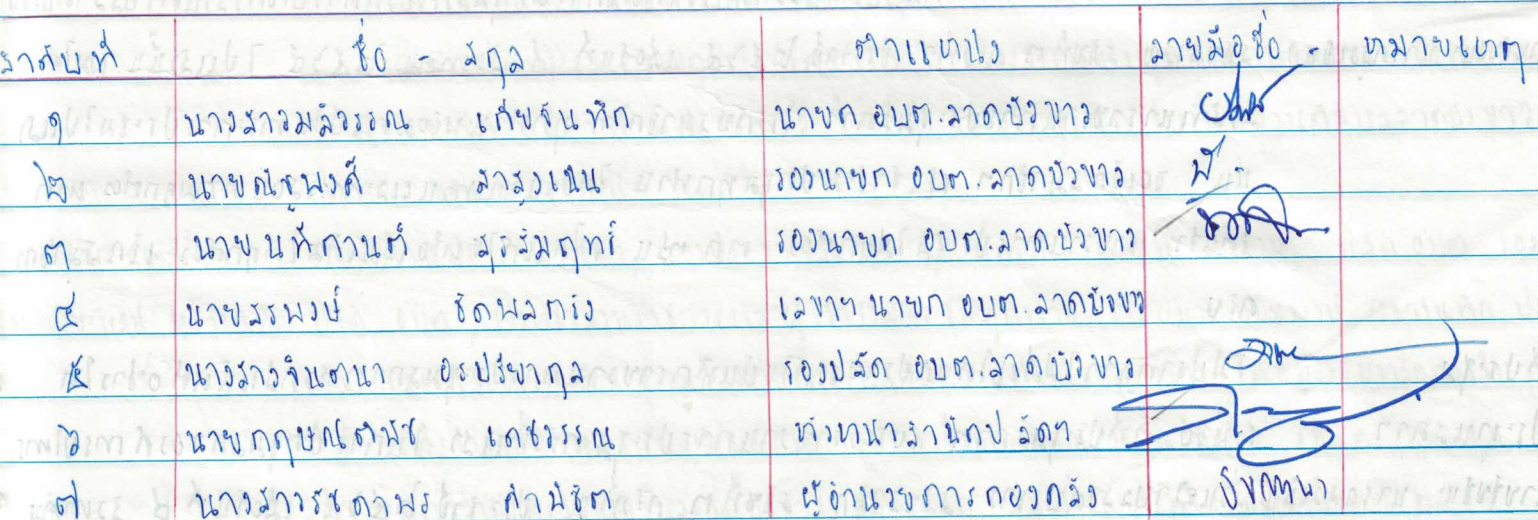 ลำดับที่ ชื่อ สกุล ตำแหน่ง ลายมือชื่อ หมายเหตุ
๑ นางสาวมลิวรรณ เกี่ยจันทึก นายก อบต.ลาดบัวขาว
๒ นายณัฐพงศ์ สำรวงแฉน รองนายก อบต.ลาดบัวขาว
๓ นายนที่กานต์ สุริมฤทธิ์ รองนายก อบต.ลาดบัวขาว
๔ นายสรพงษ์ ชิดพลกรัง เลขานายก อบต.ลาดบัวขาว
๕ นางสาวจินตนา อรปรียากุล รองปลัด อบต.ลาดบัวขาว
๖ นายกฤษณต์ชัช เดชวรรณ หัวหน้าสำนักปลัดฯ
๗ นางสาวรัชดาพร คำพิชิต ผู้อำนวยการกองคลัง